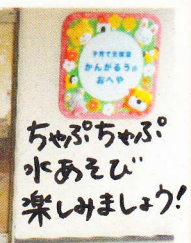 子育て支援室
かんがるうの
おへや
ちゃぷちゃぷ
水あそび
楽しみましょう!